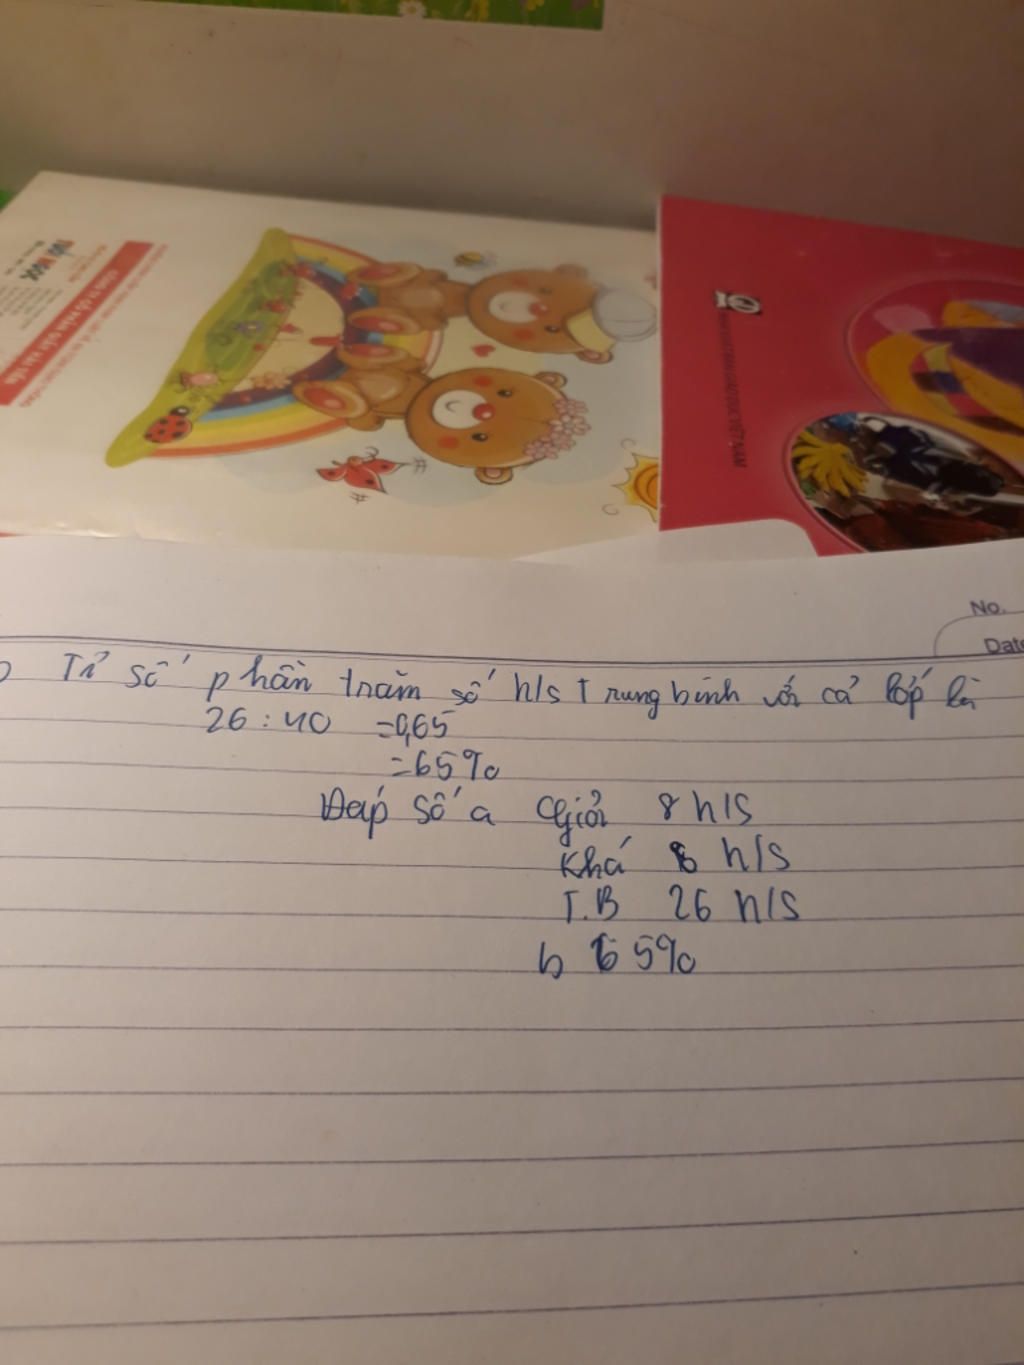 No.
Date
Tỉ số phần trăm số h/s Trung bình với cả lớp là
26 : 40 = 0,65
= 65%
Đáp số a Giỏi 8 h/s
Khá 6 h/s
T.B 26 h/s
b 65%